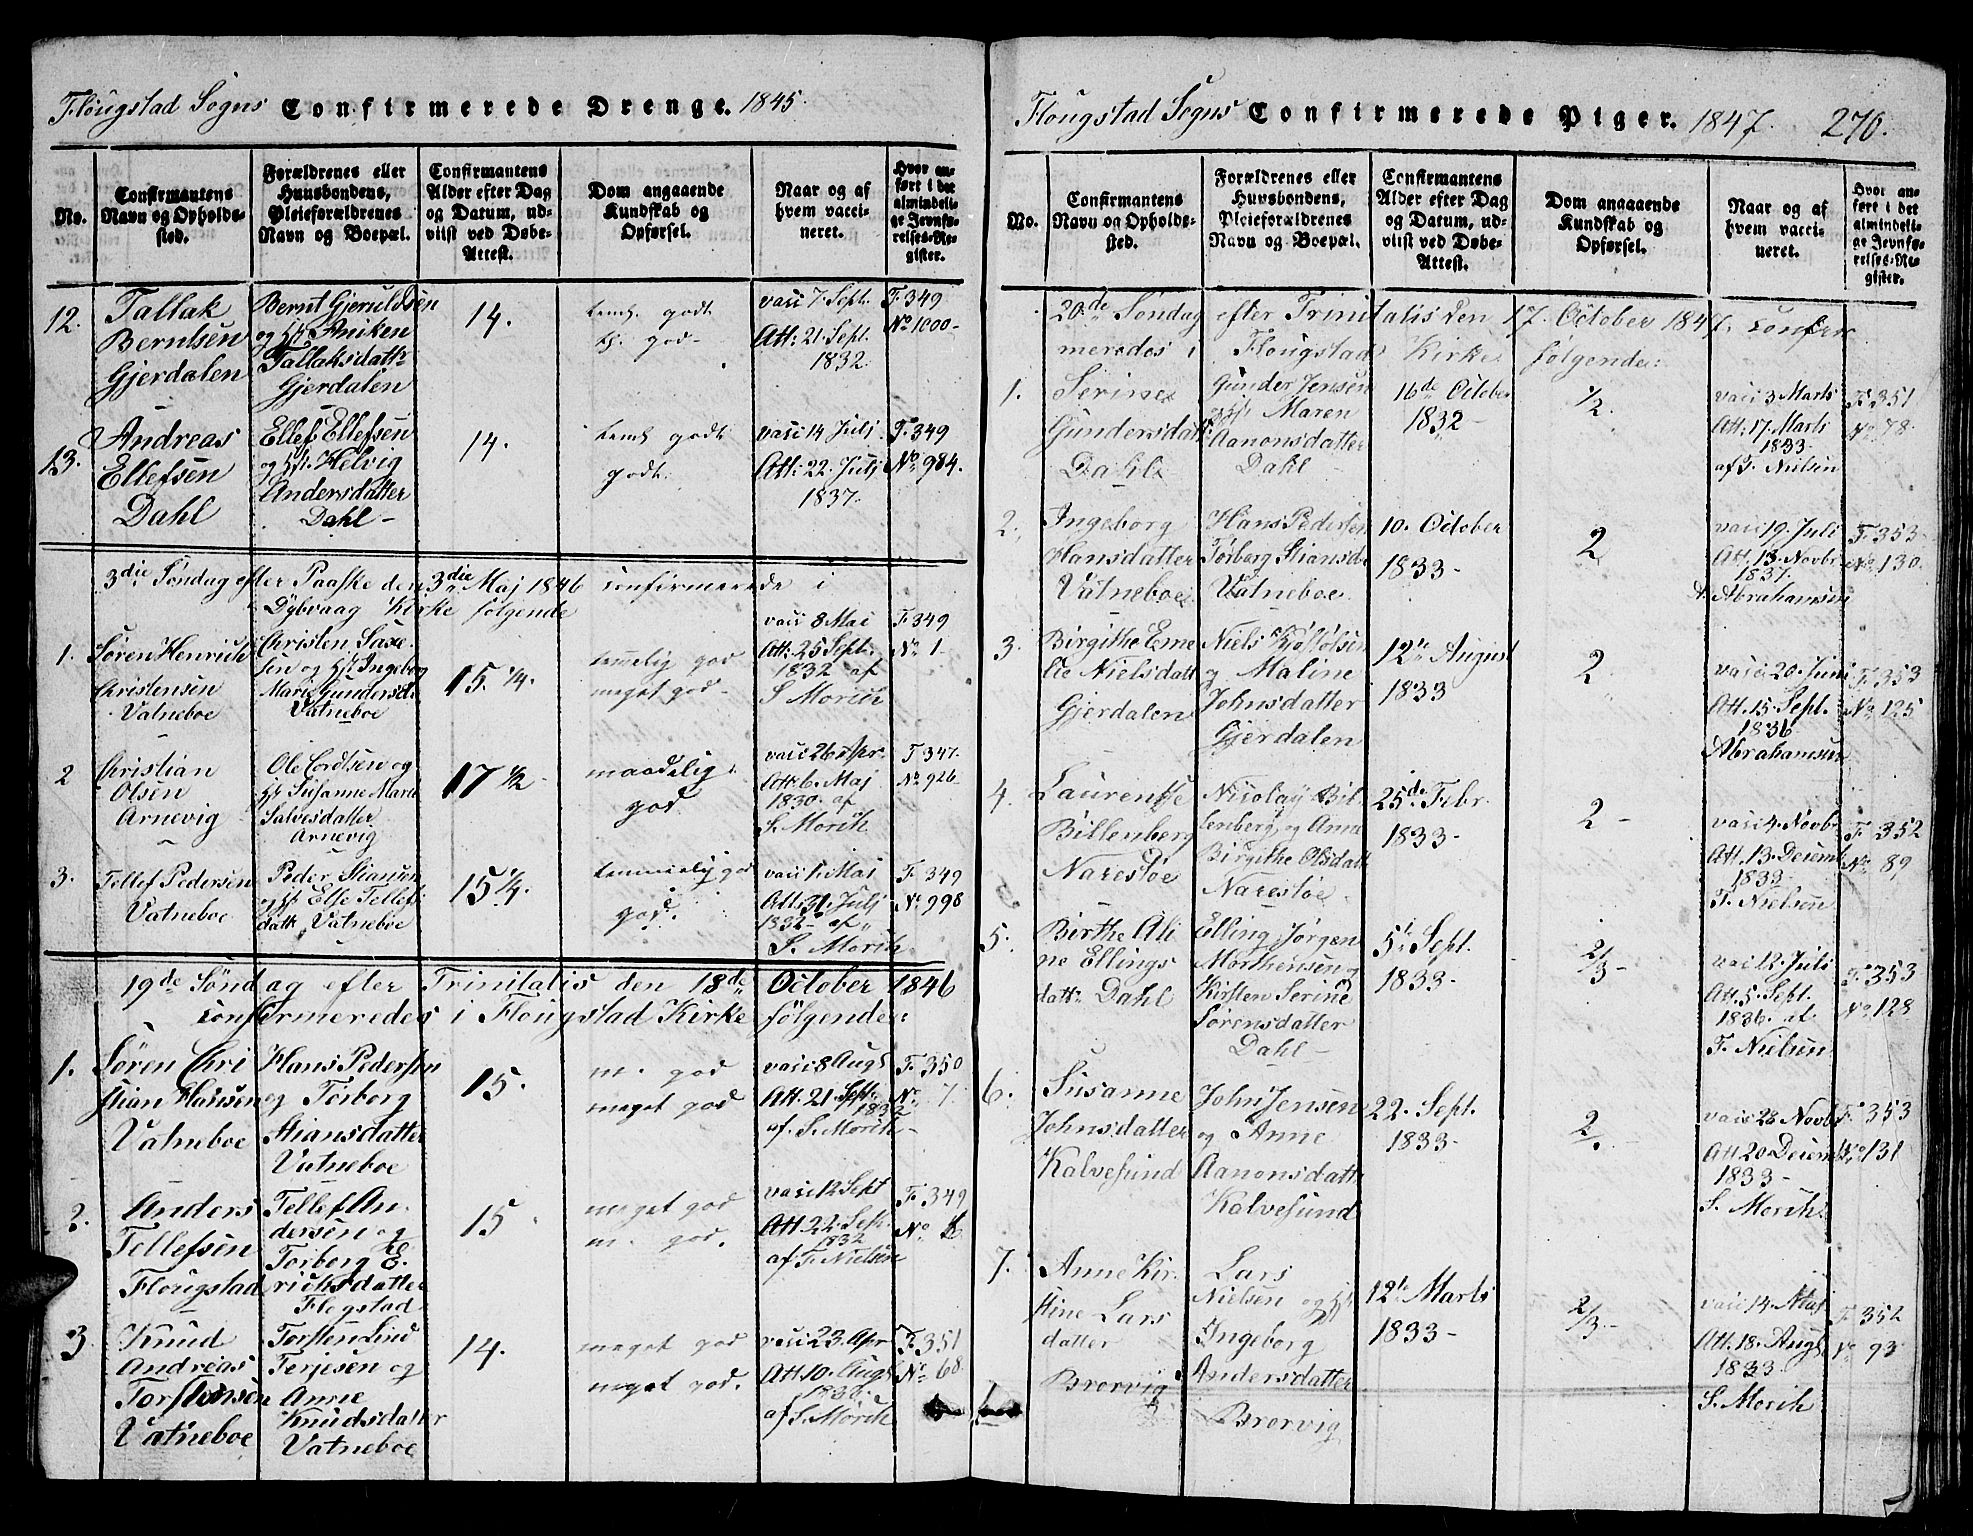 Flougstad Sogns Confirmerede Drenge. 1845.
No.
Confirmantens
Navn og Opholds-
sted.
Forældrenes eller
Huusbondens,
Pleieforældrenes
Navn og Boepæl.
Confirmantens
Alder efter Dag
og Datum, ud-
viist ved Døbe-
Attest.
Dom angaaende
Kundskab og
Opførsel.
Naar og af
hvem vacci-
neret.
Hvor an-
ført i det
almindeli-
ge Jevnfø-
relses-Re-
gister.
12.
Tallak
Berntsen
Gjerdalen
Bernt Gjeruldsen
og Hst Aniken
Tallaksdattr
Gjerdalen
14.
teml. godt
god-
vaci 7 Sept.
Att: 21. Sept.
1832.
F. 349
No 1000-
13.
Andreas
Ellefsen
Dahl
Ellef Ellefsen
og Hst. Helvig
Andersdatter
Dahl-
14.
teml godt
godt.
vaci 14 Julj
Att: 22. Julj
1837.
F. 349
No 984.
3die Søndag efter Paaske den 3die Maj 1846 confirmerede i
Dybvaag Kirke følgende
1.
Søren Henrich
Christensen
Vatneboe
Christen Saxe
sen og Hst Ingeborg
Marie Gundersdtr
Vatneboe
15. 1/4.
temelig god
meget god-
vaci 8 Mai
Att: 25 Sept:
1832 af
S Morith
F. 349
No 1-
2
Christian
Olsen
Arnevig
Ole Cordtsen og
Hst Susanne Marie
Salvesdatter
Arnevig
17 1/2-
maadelig
god
vaci 26 Apr.
Att: 6. Maj
1830. af
S. Morith
F 347.
No 926-
3.
Tellef Pedersen
Vatneboe
Peder Stiansen
og Hst Else Tellef
datt. Vatneboe
15 1/4.
temmelig god
god.
vaci 1. Maj
Att: 31. Julj
1832- af
S. Morith
F. 349
No 998
19de Søndag efter Trinitatis den 18de October 1846
confirmeredes i Flougstad Kirke følgende:
1.
Søren Chri
stian Hansen
Vatneboe
Hans Pedersen
og Torborg
Stiansdatter
Vatneboe
15.
m. god
meget god
vaci 8 Augt
Att: 21. Sept.
1832
af. S. Morith-
F. 350
No 7.
2.
Anders
Tellefsen
Flougstad
Tellef An-
dersen og
Torberg E.
richsdatter
Flogstad
15.
meget god
m. god.
vaci 12 Sept
Att 22 Sep.
1832
af F. Nielsen
F. 349
No
3
Knud
Andreas
Torstensen
Vatneboe
Torsten Lind
Terjesen og
Anne
Knudsdatter
Vatneboe
14.
meget god
meget god.
vaci 23. Apr
Att 10. Augt
af S. Morith
F. 351
No 68.
Flougstad Sogns Confirmerede Piger. 1847. 270.
No.
Confirmantens
Navn og Opholds-
sted.
Forældrenes eller
Huusbondens,
Pleieforældrenes
Navn og Boepæl.
Confirmantens
Alder efter Dag
og Datum, ud-
viist ved Døbe-
Attest.
Dom angaaende
Kundskab og
Opførsel.
Naar og af
hvem vacci-
neret.
Hvor an-
ført i det
almindeli-
ge Jevnfø-
relses-Re-
gister.
20de Søndag efter Trinitatis den 17. October 1847. confir
meredes i Flougstad Kirke følgende:
1.
Serine
Gundersdatt.
Dahl
Gunder Jensen
og Hst Maren
Aanonsdatter
Dahl
16de October
1832-
1/2
vaci 3 Marts
Att. 17. Marts
1833-
af F. Nielsen
F. 351
No 78.
2.
Ingeborg
Hansdatter
Vatneboe
Hans Pedersen
Torberg Stiansd.
Vatneboe.
10. October
1833-
2
vaci 19. Juli
Att. 13. Novbr
1837.
Abrahamsen
F. 353-
No 130.
3.
Birgithe Eme
lie Nielsdatt
Gjerdalen
Niels Kjøstolsen
og Maline
Johnsdatter
Gjerdalen
12te August
1833
2
vaci 20. Juni
Att. 15. Sept.
1836
Abrahamsen
F. 353
No 125
4.
Laurentse
Billenberg
Narestøe
Nicolay Bil-
lenberg og Anne
Birgithe Olsdatt
Narestøe
25de Febr.
1833-
2-
vaci 4. Novbr
Att. 13. Decemb
1833-
F. Nielsen
F. 352
No 89,
5.
Birthe Ali
ne Ellings
datt. Dahl
Elling Jørgen
Morthensen og
Kirsten Serine
Sørensdatter
Dahl-
5t Sept.
1833-
2/3-
vaci 12. Juli
Att. 5. Sept.
1836. af
F. Nielsen
F. 353
No 128
6.
Susanne
Johnsdatter
Kalvesund
John Jensen
og Anne
Aanonsdatt.
Kalvesund
22. Sept.
1833-
2/.-
vaci 28 Novbr
Att. 20 Decemb.
1833-
S. Morith.
F. 353
No 131
7.
Anne Kir-
stine Lars
datter
Brørvig
Lars
Nielsen og Hst
Ingeborg
Andersdatter
Brørvig
12te Marts
1833-
2/3-
vaci 14. Maj
Att. 18. Augt.
1833.
S. Morith
F. 352
No 93-